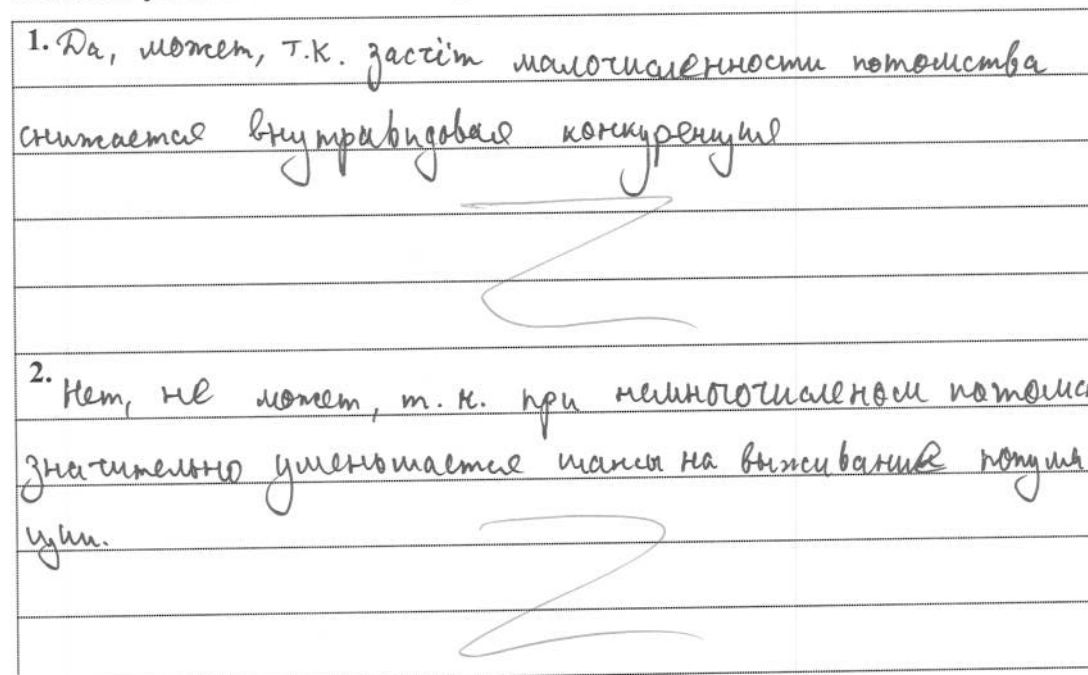 1. Да, может, т.к. засчёт малочисленности потомства
снижается внутривидовая конкуренция
2. Нет, не может, т.к. при немногочисленом потомс
значительно уменьшается шансы на выживание популя
ции.